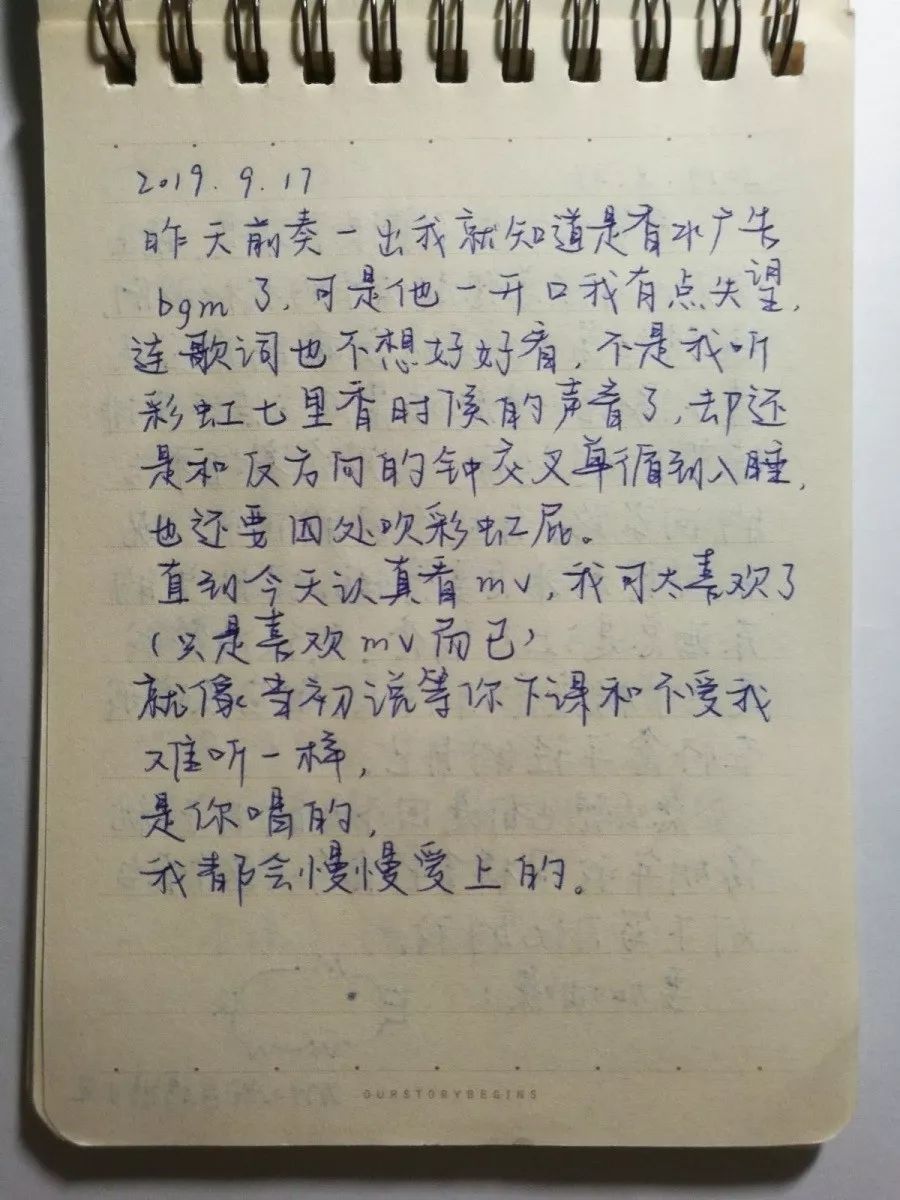 2019.9.17
昨天前奏一出我就知道是香水广告
bgm了,可是他一开口我有点失望,
连歌词也不想好好看,不是我听
彩虹七里香时候的声音了,却还
是和反方向的钟交叉单循到入睡,
也还要四处吹彩虹屁。
直到今天认真看mv,我可太喜欢了
(只是喜欢mv而已)
就像当初说等你下课和不爱我
难听一样,
是你唱的,
我都会慢慢爱上的。
OURSTORYBEGINS